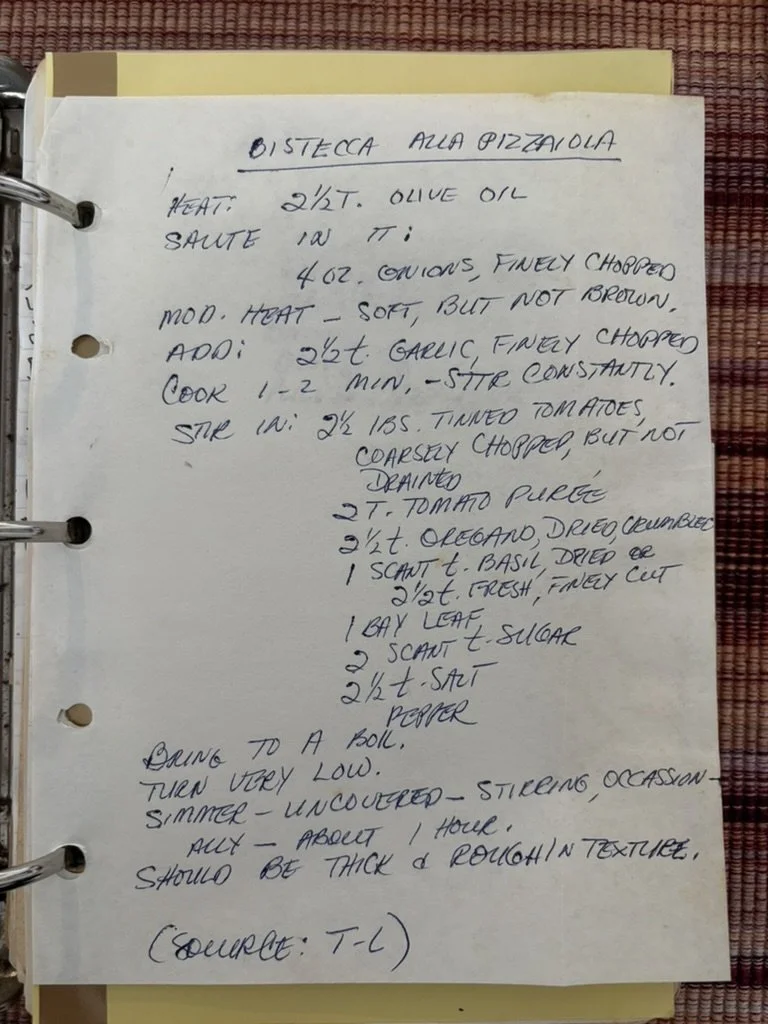 BISTECCA ALLA PIZZAIOLA
HEAT: 2½T. OLIVE OIL
SAUTE IN IT:
4 OZ. ONIONS, FINELY CHOPPED
MOD. HEAT – SOFT, BUT NOT BROWN.
ADD: 2½t. GARLIC, FINELY CHOPPED
COOK 1-2 MIN. – STIR CONSTANTLY.
STIR IN: 2½ lBS. TINNED TOMATOES,
COARSELY CHOPPED, BUT NOT
DRAINED
2 T. TOMATO PURÉE
2½t. OREGANO, DRIED, CRUMBLED
1 SCANT t. BASIL, DRIED OR
2½t. FRESH, FINELY CUT
1 BAY LEAF
2 SCANT t. SUGAR
2½ t. SALT
PEPPER
BRING TO A BOIL.
TURN VERY LOW.
SIMMER – UNCOVERED – STIRRING, OCCASSION–
ALLY – ABOUT 1 HOUR.
SHOULD BE THICK & ROUGH IN TEXTURE.
(SOURCE: T-L)